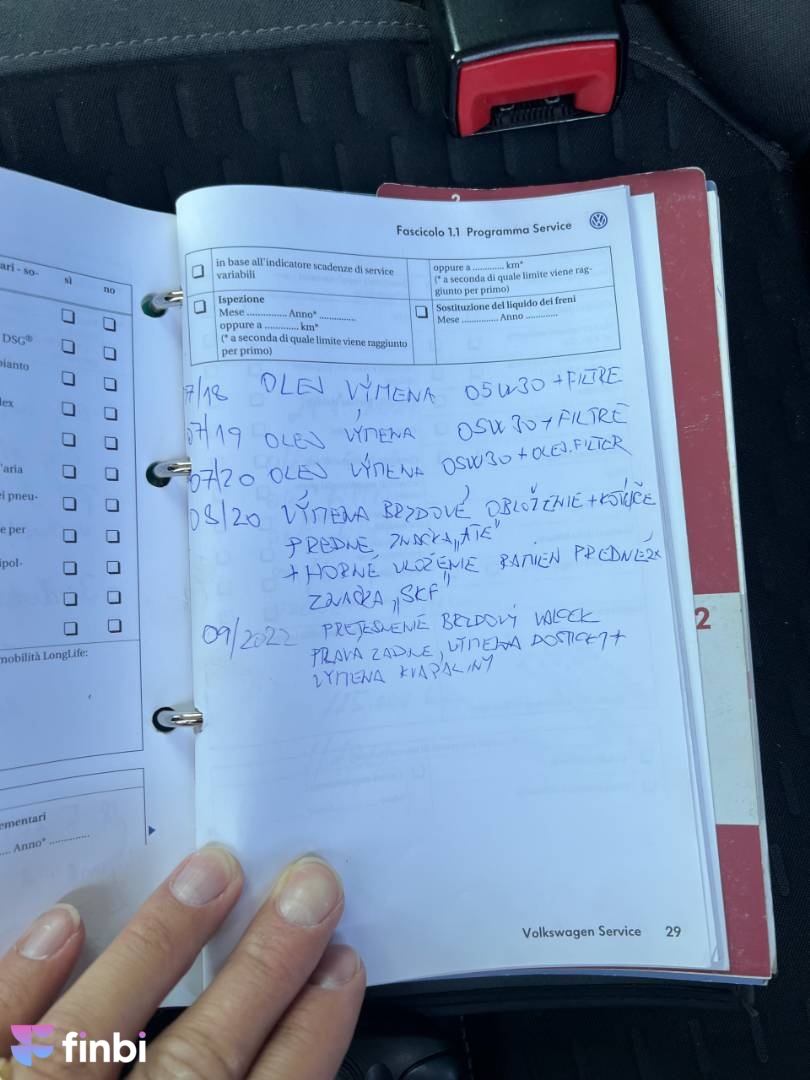 ari - so-
sì
no
DSG®
pianto
lex
'aria
ei pneu-
e per
ipol-
mobilità LongLife:
ementari
... Anno* ...............
2
Fascicolo 1.1 Programma Service
in base all'indicatore scadenze di service
variabili
oppure a ............ km*
(* a seconda di quale limite viene rag-
giunto per primo)
Ispezione
Mese ............... Anno* ..............
oppure a ............ km*
(* a seconda di quale limite viene raggiunto
per primo)
Sostituzione del liquido dei freni
Mese .............. Anno .............
7/18 OLEJ VÝMENA 05W30 + FILTRE
07/19 OLEJ VÝMENA 05W30 + FILTRE
07/20 OLEJ VÝMENA 05W30 + OLEJ. FILTER
08/20 VÝMENA BRZDOVÉ OBLOŽENIE + KOTÚČE
PREDNE, ZNAČKA „ATE"
+ HORNE ULOŽENIE RAMIEN PREDNÉ 2x
ZNAČKA „SKF"
09/2022 PRETESNENIE BRZDOVÝ VALCEK
PRAVA ZADNE, VÝMENA DOSTICKY +
VÝMENA KVAPALINY
2
Volkswagen Service 29
finbi